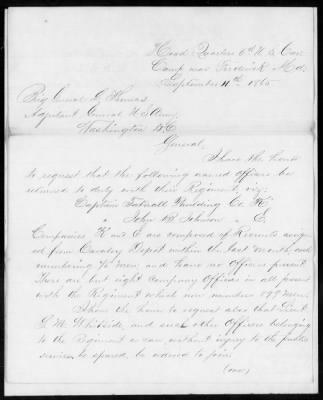 Head Quarters 6th U.S. Cav
Camp near Frederick Md.
September 11th 1865
Brig Genral L Thomas
Adjutant General U.S. Army,
Washington D.C.
General,
I have the honor
to request that the following named officers be
returned to duty with their Regiment, viz:
Captain Tatnall Paulding Co. "K"
" John B Johnson " E
Companies "K" and E are composed of Recruits assign
ed from Cavalry Depot within the last month, and
numbering 70 men, and have no Officers present.
There are but eight Company Officers in all present
with the Regiment which now numbers men.
I have the honor to request also that Lieut
S. M. Whitside, and such other Officers belonging
to the Regiment as can without injury to the public
service be spared, be ordered to join.
(over)